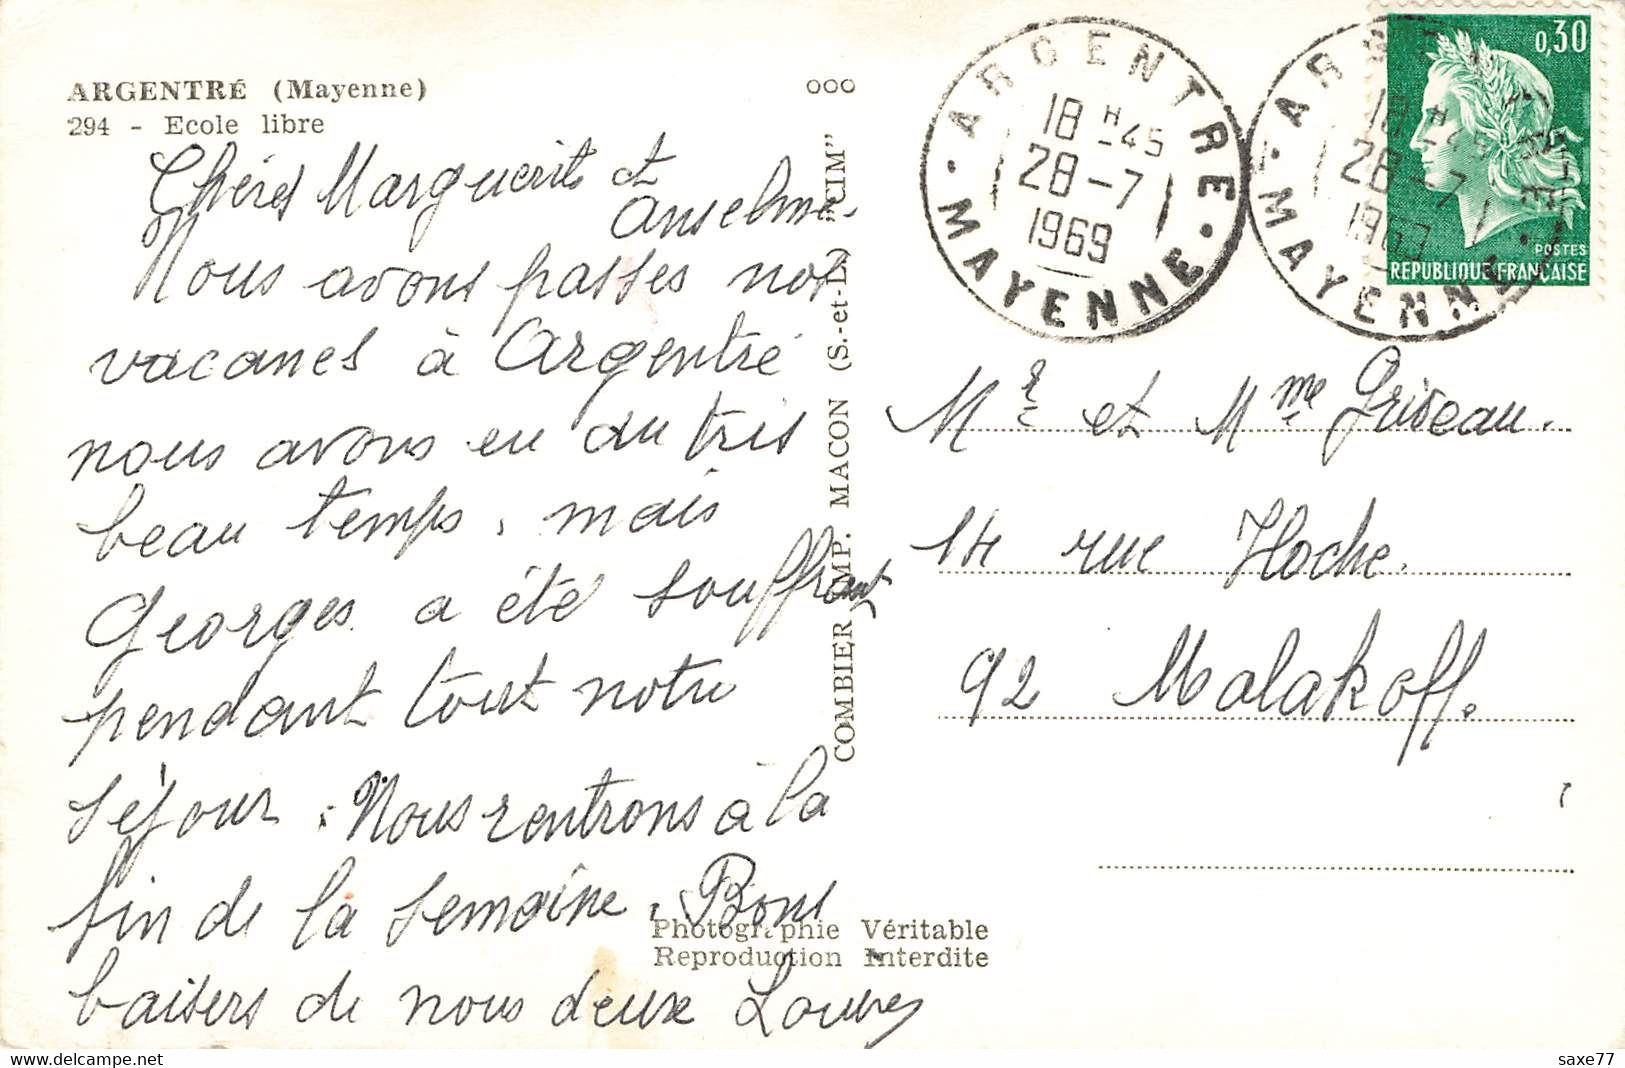 ARGENTRÉ (Mayenne)
294 - Ecole libre
ooo
Chéres Marguerite et
Anselme.
Nous avons passes nos
vacances à Argentré
nous avons eu du très
beau temps, mais
Georges a été souffrant
pendant tout notre
séjour. Nous rentrons à la
fin de la semaine. Bons
baisers de nous deux
COMBIER IMP. MACON (S.-et-L.) "CIM"
Photographie Véritable
Reproduction Interdite
ARGENTRE
18 H -45
28 -7
1969
MAYENNE
ARGENTRE
18 H -45
28 -7
1969
MAYENNE
0,30
POSTES
REPUBLIQUE FRANÇAISE
Mr et Mme Griveau.
14 rue Hoche.
92 Malakoff.
saxe77